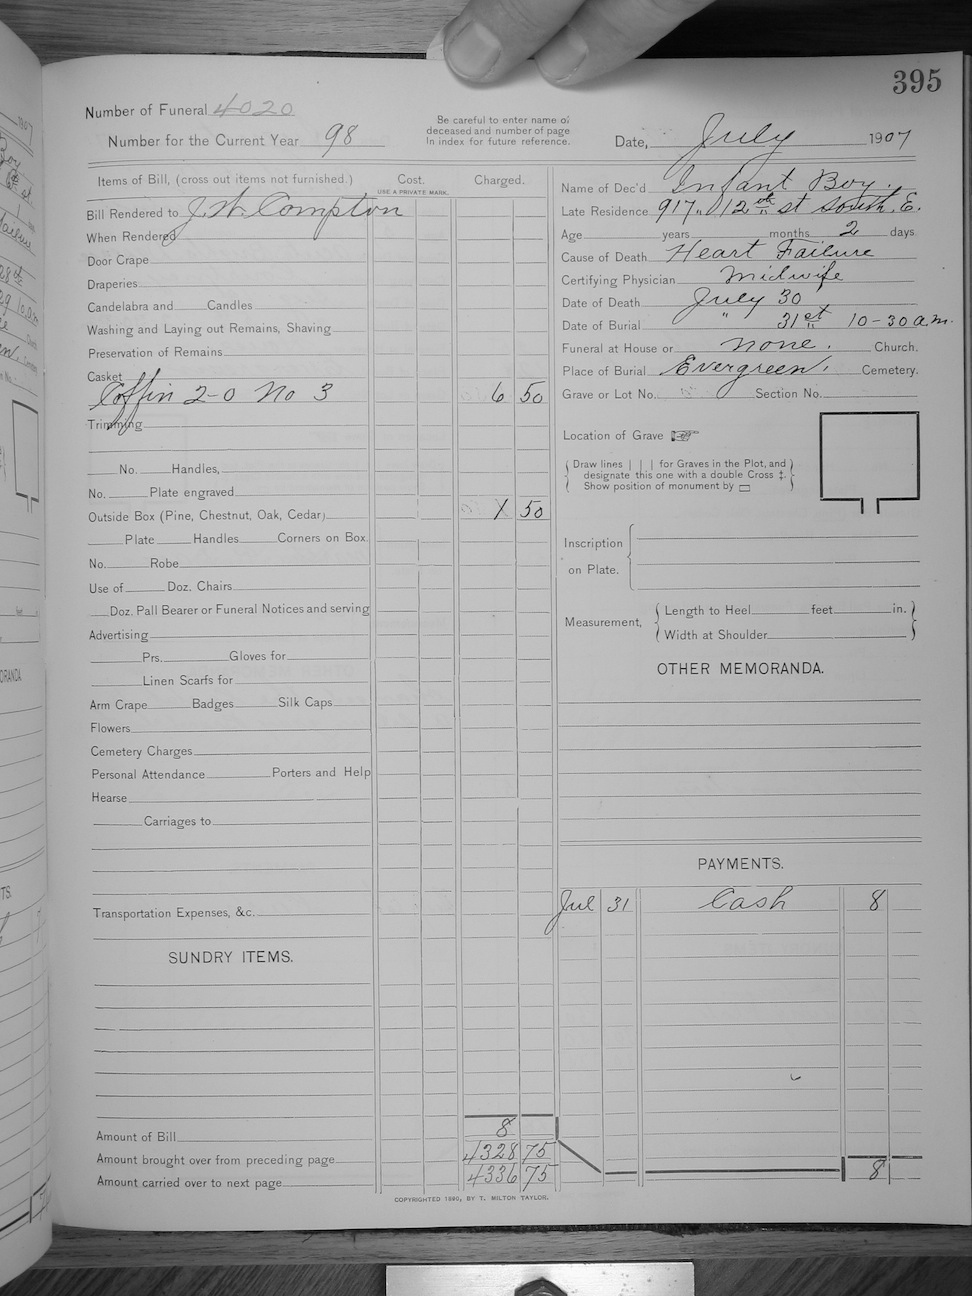 395
Number of Funeral 4020
Number for the Current Year 98
Be careful to enter name of
deceased and number of page
In index for future reference.
Date, July 1907
Items of Bill, (cross out items not furnished.) Cost. Charged.
USE A PRIVATE MARK.
Bill Rendered to J. W. Compton
When Rendered
Door Crape
Draperies
Candelabra and Candles
Washing and Laying out Remains, Shaving
Preservation of Remains
Casket
Coffin 2-0 No 3 6 50
Trimming
No. Handles,
No. Plate engraved
Outside Box (Pine, Chestnut, Oak, Cedar) 1 50
Plate Handles Corners on Box.
No. Robe
Use of Doz. Chairs
Doz. Pall Bearer or Funeral Notices and serving
Advertising
Prs. Gloves for
Linen Scarfs for
Arm Crape Badges Silk Caps
Flowers
Cemetery Charges
Personal Attendance Porters and Help
Hearse
Carriages to
Transportation Expenses, &c.
SUNDRY ITEMS.
Amount of Bill 8
Amount brought over from preceding page 4328 75
Amount carried over to next page 4336 75
COPYRIGHTED 1890, BY T. MILTON TAYLOR.
Name of Dec'd Infant Boy.
Late Residence 917 " 12th st South. E.
Age years months 2 days
Cause of Death Heart Failure
Certifying Physician Midwife
Date of Death July 30
Date of Burial " 31st 10-30 a.m.
Funeral at House or none. Church.
Place of Burial Evergreen. Cemetery.
Grave or Lot No. Section No.
Location of Grave
Draw lines | | | for Graves in the Plot, and
designate this one with a double Cross ‡.
Show position of monument by ▭
Inscription
on Plate.
Measurement,
Length to Heel feet in.
Width at Shoulder
OTHER MEMORANDA.
PAYMENTS.
Jul 31 Cash 8
8